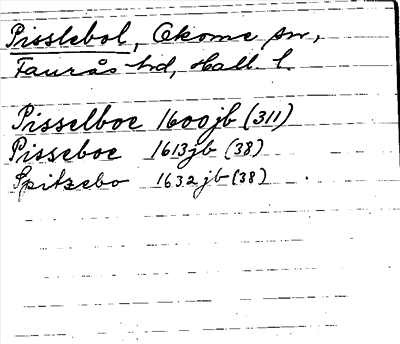 Pisslebol, Okome sn,
Faurås hd, Hall. l.
Pisselboe 1600jb (311)
Pisseboe 1613jb (38)
Spitzebo 1632jb (38)